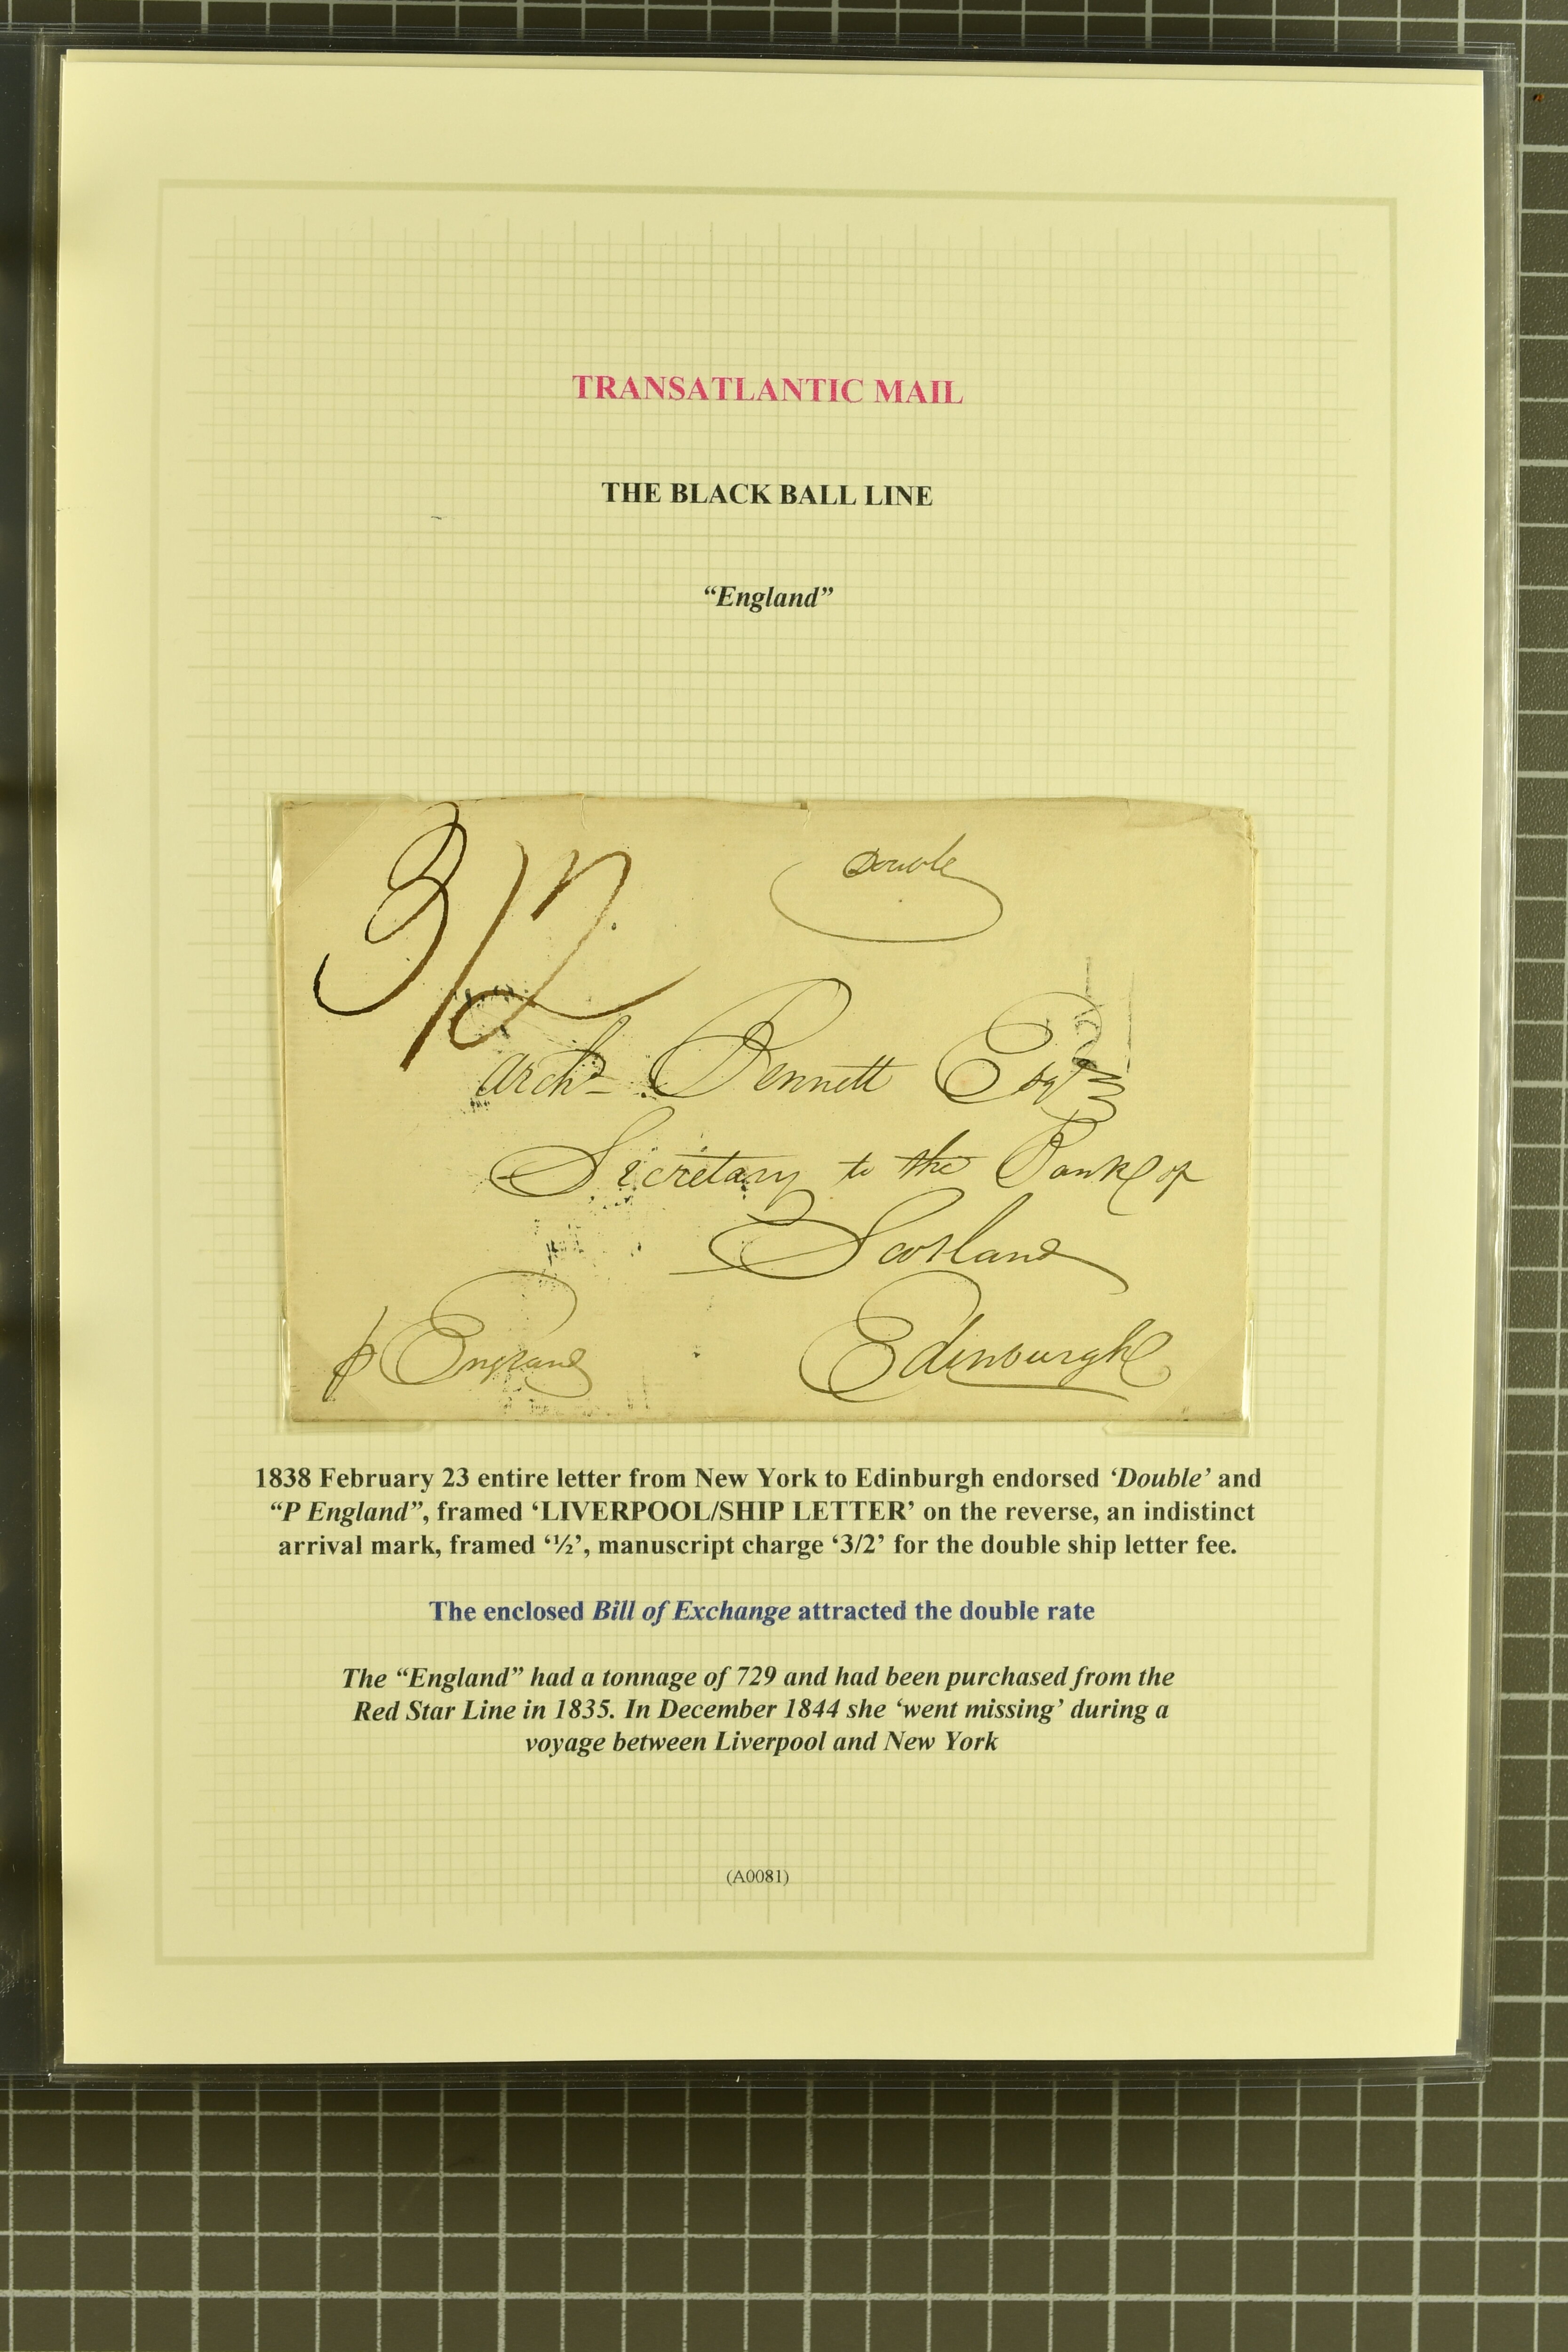 TRANSATLANTIC MAIL
THE BLACK BALL LINE
“England”
3/2
Double
Archd Bennett Esqr
Secretary to the Bank of
Scotland
Edinburgh
p England
1838 February 23 entire letter from New York to Edinburgh endorsed ‘Double’ and
“P England”, framed ‘LIVERPOOL/SHIP LETTER’ on the reverse, an indistinct
arrival mark, framed ‘½’, manuscript charge ‘3/2’ for the double ship letter fee.
The enclosed Bill of Exchange attracted the double rate
The “England” had a tonnage of 729 and had been purchased from the
Red Star Line in 1835. In December 1844 she ‘went missing’ during a
voyage between Liverpool and New York
(A0081)